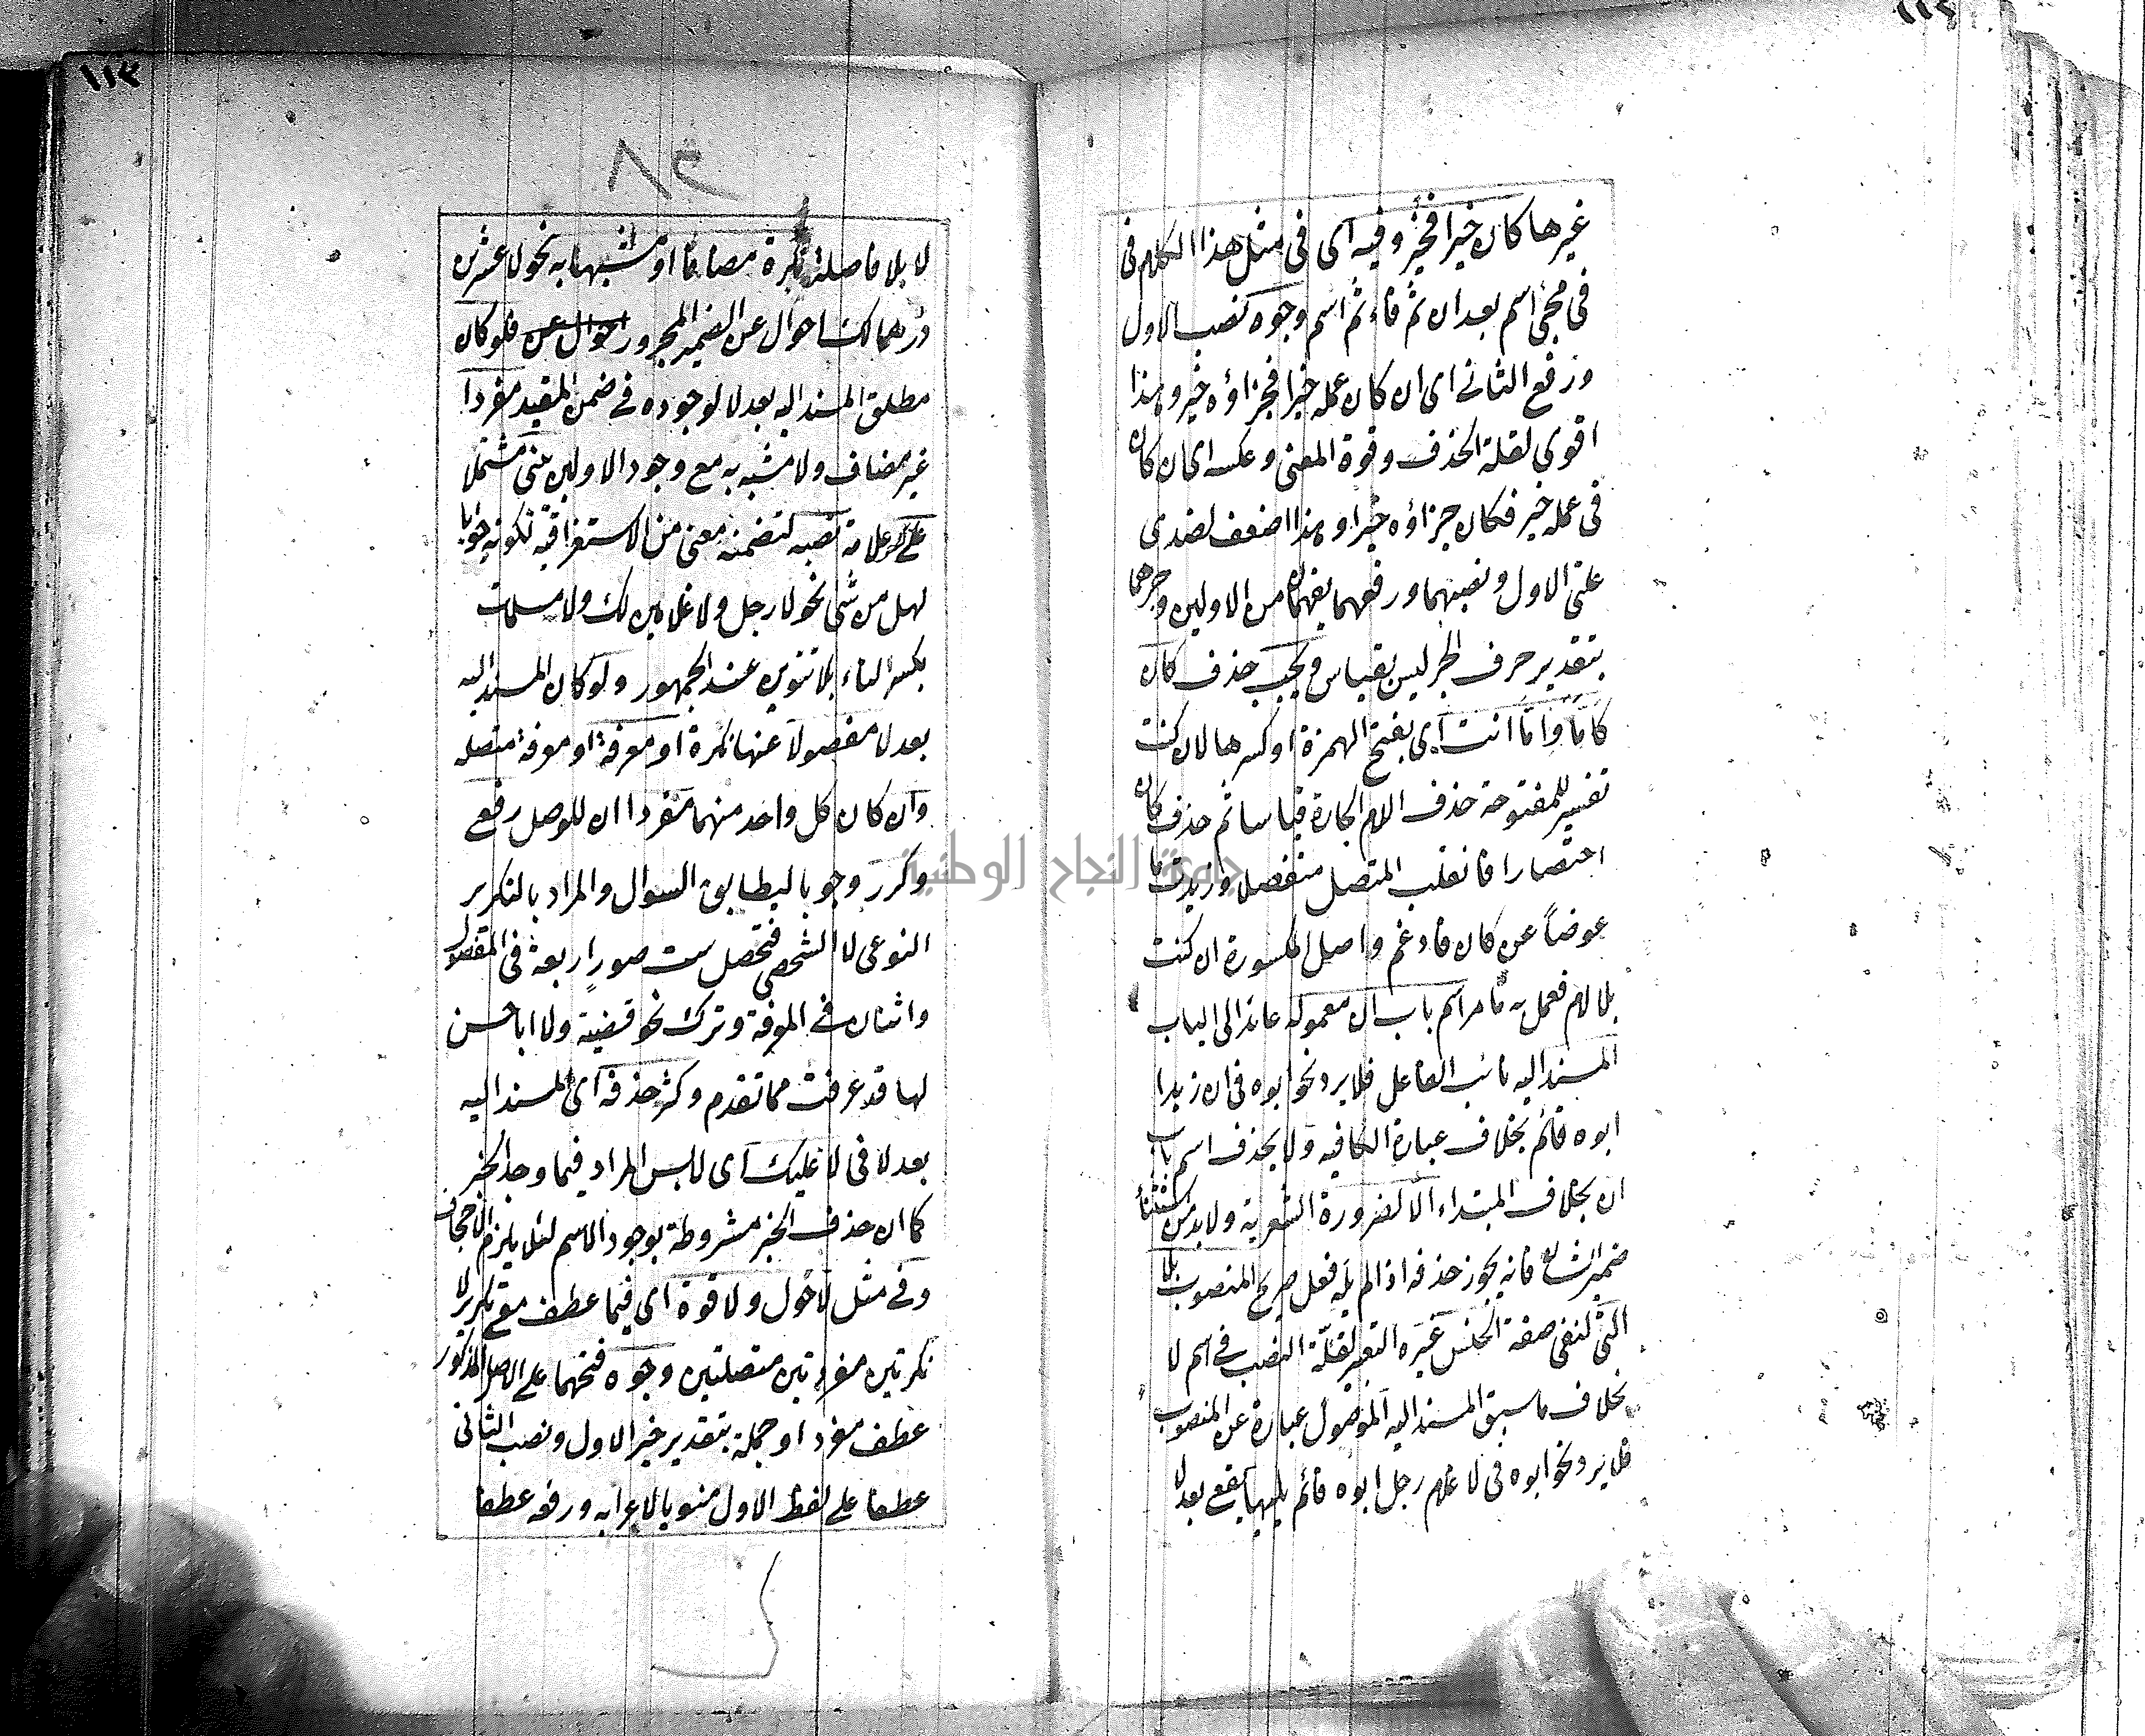 ١١٢
غيرها كان خيرا فخير وفيه اى فى مثل هذا الكلام فى
فى مجئ اسم بعد ان ثم فاء ثم اسم وجوه نصب الاول
ورفع الثانى اى ان كان عمله خيرا فجزاؤه خير وهذا
اقوى لقلة الحذف وقوة المعنى وعكسه اى ان كان
فى عمله خير فكان جزاؤه خيرا وهذا اضعف لضدى
علتى الاول ونصبهما ورفعهما يفهمان من الاولين وجرهما
بتقدير حرف الجر ليس بقياس ويجب حذف كان
كامّا وامّا انت اى بفتح الهمزة او كسرها لان كنت
تفسير للمفتوحة حذف اللام الجارة قياسا ثم حذف كان
اختصارا فانقلب المتصل منفصلا وزيدت ما
عوضاً عن كان فادغم واصل المكسورة ان كنت
بلا لام فعمل به ما مر اسم باب ان معموله عائد الى الباب
المسند اليه نائب الفاعل فلا يرد نحو ابوه فى ان زيدا
ابوه قائم بخلاف عبارة الكافيه ولا يحذف اسم باب
ان بخلاف المبتداء الا لضرورة الشعرية ولا بد من استثناء
ضمير الشان فانه يجوز حذفه اذا لم يله فعل صريح المنصوب بلا
التى لنفى صفة الجنس غيره التعبير لقلة النصب فى اسم لا
بخلاف ما سبق المسند اليه الموصول عبارة عن المنصوب
فلا يرد نحو ابوه فى لا غلام رجل ابوه قائم يليها يقع بعد لا
١١٣
٨٣
لا بلا فاصلة نكرة مضافا او مشبها به نحو لا عشرين
درهما لك احوال عن الضمير المجرور احوال عن فلو كان
مطلق المسند اليه بعد لا لوجوده فى ضمن المقيد مفردا
غير مضاف ولا مشبه به مع وجود الاولين بنى مشتملا
على علامة نصبه لتضمنه معنى من الاستغراقية لكونه جوابا
لهل من شئ نحو لا رجل ولا غلامين لك ولا مسلمات
بكسر التاء بلا تنوين عند الجمهور ولو كان المسند اليه
بعد لا مفصولا عنها نكرة او معرفة او معرفة متصله
وان كان كل واحد منهما مفردا ان للوصل رفع
وكرر وجوبا ليطابق السوال والمراد بالتكرير
النوعى لا الشخصى فتحصل ست صورٍ اربعة فى المفصول
واثنان فى المعرفة وترك نحو قضية ولا ابا حسن
لها قد عرفت مما تقدم وكثر حذفه اى المسند اليه
بعد لا فى لا عليك اى لا بأس المراد فيما وجد الخبر
كما ان حذف الخبر مشروطة بوجود الاسم لئلا يلزم الاجحاف
وفى مثل لا حول ولا قوة اى فيما عطف مع تكرير لا
نكرتين مفردتين متصلتين وجوه فتحهما على الاصل المذكور
عطف مفرد او جملة بتقدير خبر الاول ونصب الثانى
عطفا على لفظ الاول منويا لاعرابه ورفعه عطفا
جامعة النجاح الوطنية